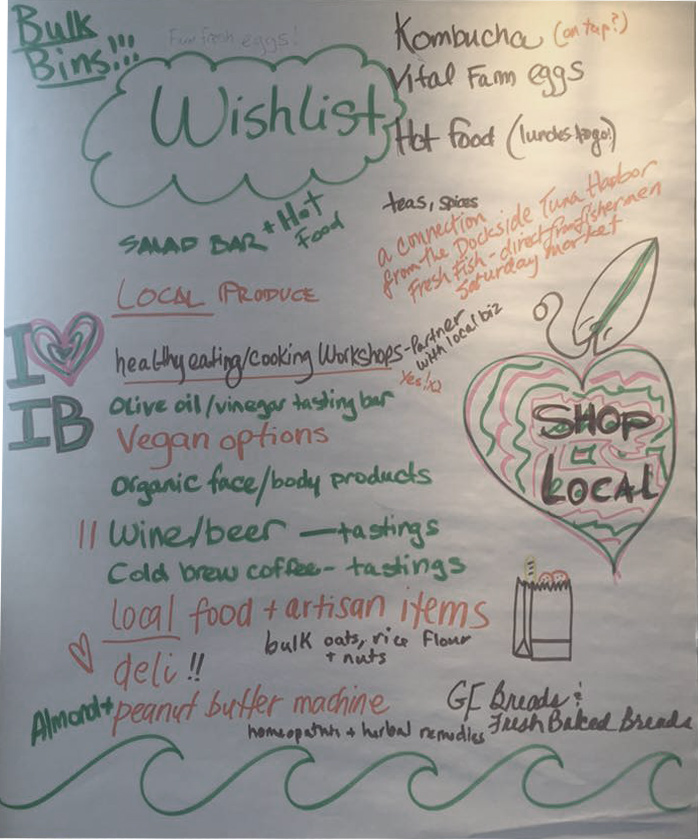 Bulk
Bins!!!
Farm fresh eggs!
Wishlist
Kombucha (on tap?)
Vital Farm eggs
Hot food (lunches to go!)
teas, spices
a connection
from the Dockside Tuna Harbor
Fresh Fish - direct from fishermen
Saturday market
SALAD BAR + Hot
Food
LOCAL PRODUCE
healthy eating/cooking Workshops - Partner
with local biz
Yes!
I
IB
Olive oil/vinegar tasting bar
Vegan options
Organic face/body products
SHOP
LOCAL
Wine/beer — tastings
Cold brew coffee - tastings
local food + artisan items
bulk oats, rice flour
+ nuts
deli !!
Almond + peanut butter machine
GF Breads &
Fresh Baked Breads
homeopathh + herbal remedies